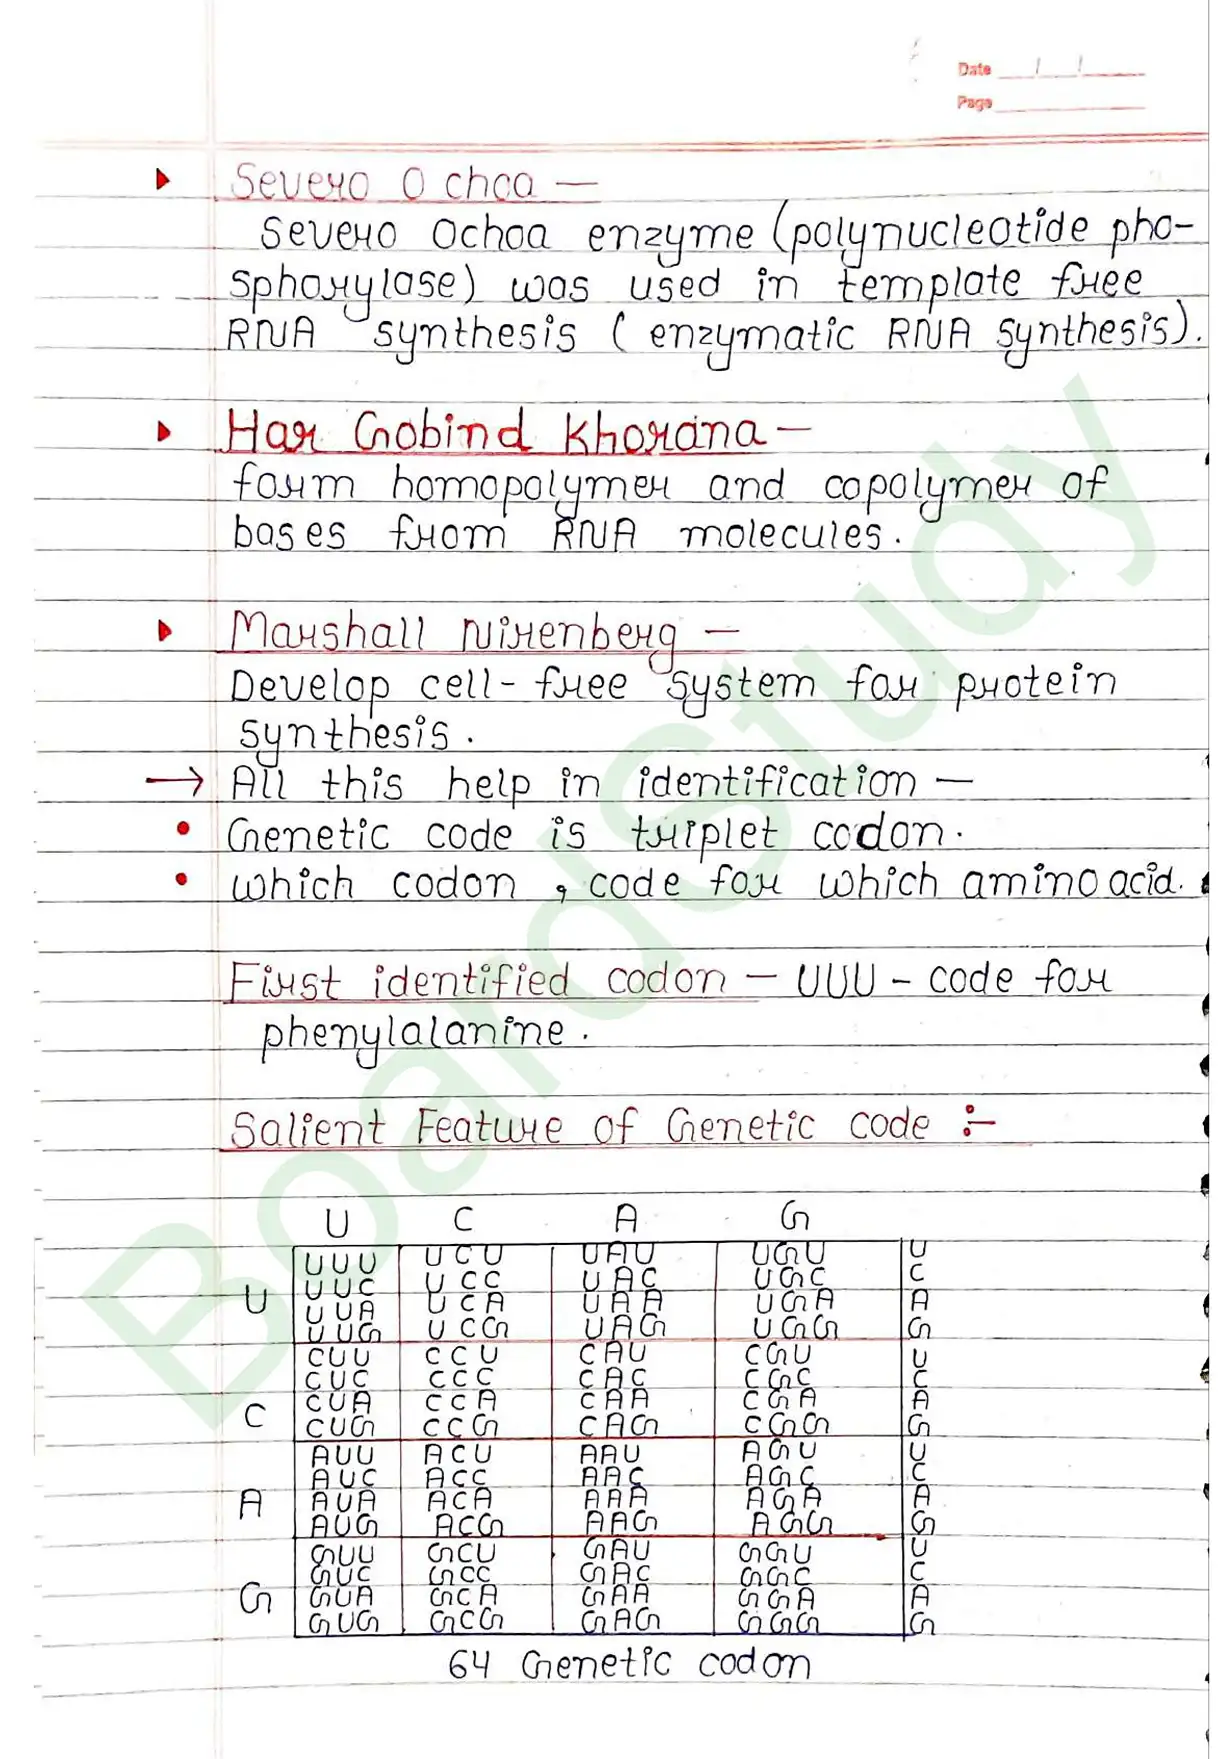 Date / /
Page
Severo Ochoa —
Severo Ochoa enzyme (polynucleotide pho-
sphorylase) was used in template free
RNA synthesis ( enzymatic RNA synthesis).
Har Gobind Khorana —
form homopolymer and copolymer of
bases from RNA molecules.
Marshall Nirenberg —
Develop cell-free system for protein
synthesis.
→ All this help in identification —
• Genetic code is triplet codon.
• Which codon , code for which amino acid.
First identified codon — UUU - code for
phenylalanine.
Salient Feature of Genetic code :-
U C A G
UUU UCU UAU UGU U
UUC UCC UAC UGC C
U UUA UCA UAA UGA A
UUG UCG UAG UGG G
CUU CCU CAU CGU U
CUC CCC CAC CGC C
C CUA CCA CAA CGA A
CUG CCG CAG CGG G
AUU ACU AAU AGU U
AUC ACC AAC AGC C
A AUA ACA AAA AGA A
AUG ACG AAG AGG G
GUU GCU GAU GGU U
GUC GCC GAC GGC C
G GUA GCA GAA GGA A
GUG GCG GAG GGG G
64 Genetic codon
BoardStudy